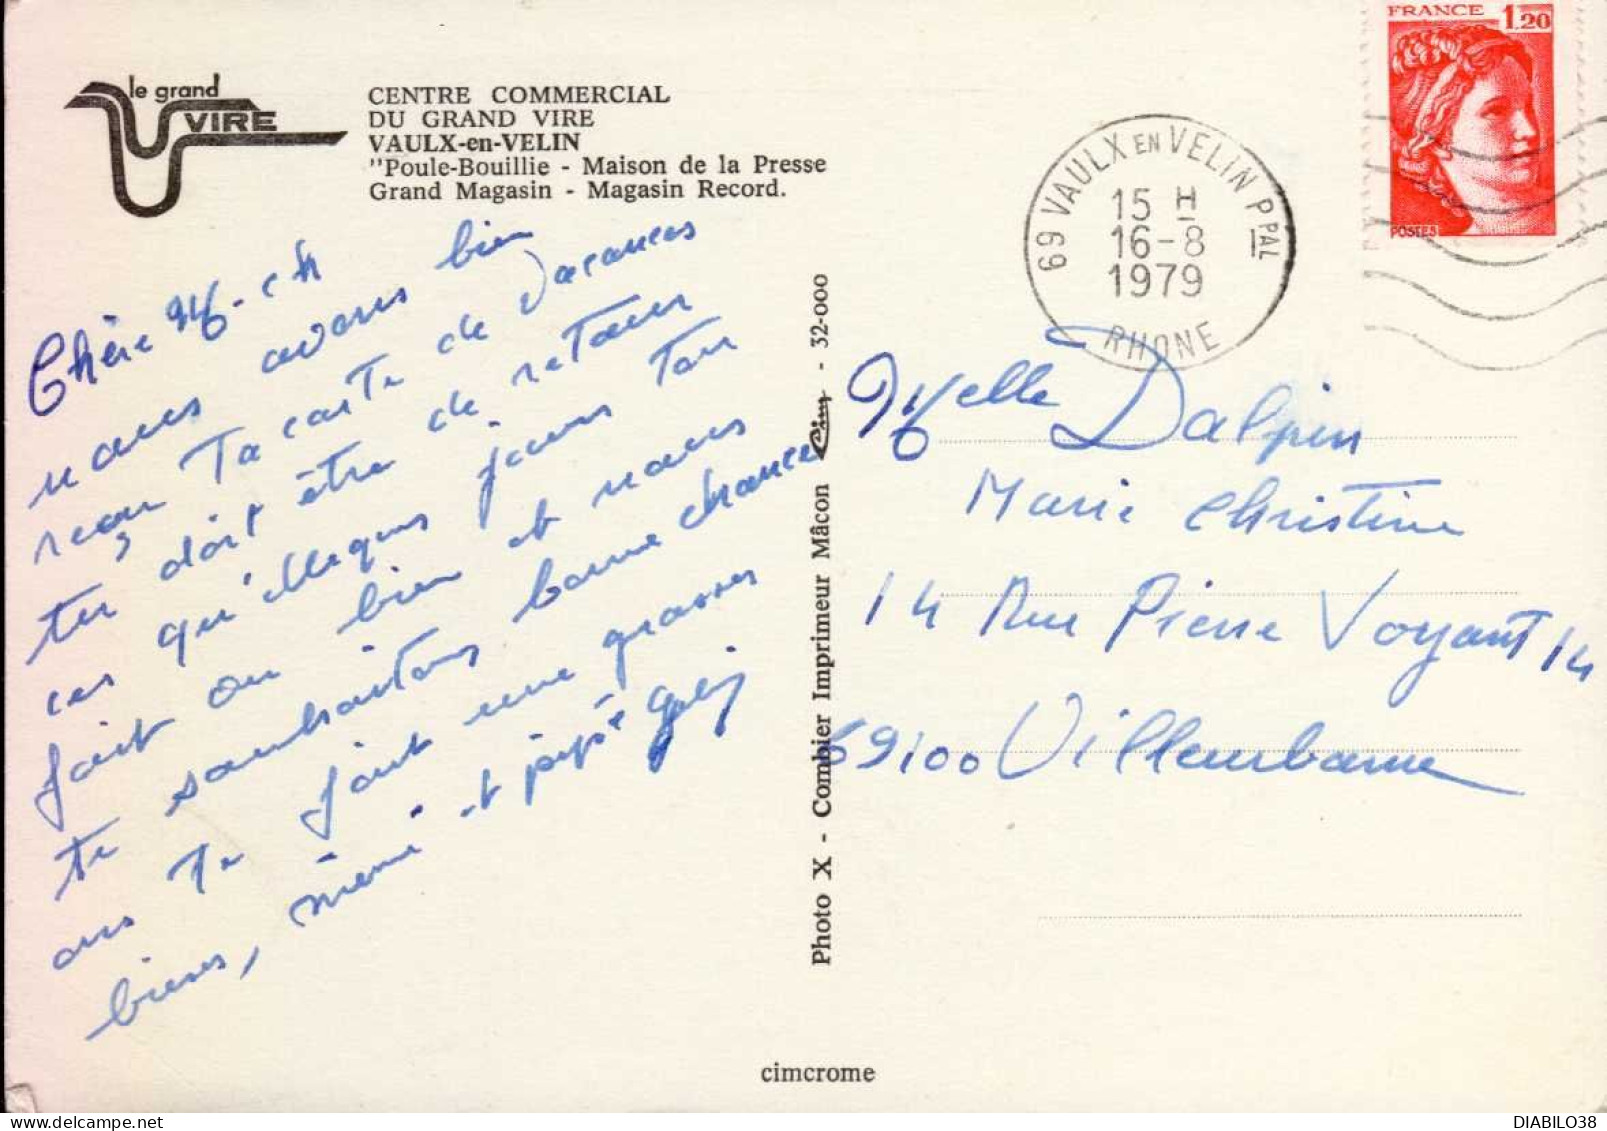 le grand
VIRE
CENTRE COMMERCIAL
DU GRAND VIRE
VAULX-en-VELIN
"Poule-Bouillie - Maison de la Presse
Grand Magasin - Magasin Record.
Chère M-ch
nous avons bien
reçu Ta carte de vacances
tu doit être de retour
ces jours ton
fait ou bien et nous
te souhaitons bonne chance
ons Te fait une grosses
bises, mémé et pépé
Photo X - Combier Imprimeur Mâcon Cim - 32-000
cimcrome
FRANCE 1,20
POSTES
69 VAULX EN VELIN PPAL
15 H
16-8
1979
RHONE
Melle Dalpin
Marie Christine
14 Rue Pierre Voyant 14
69100 Villeurbanne
DIABILO38